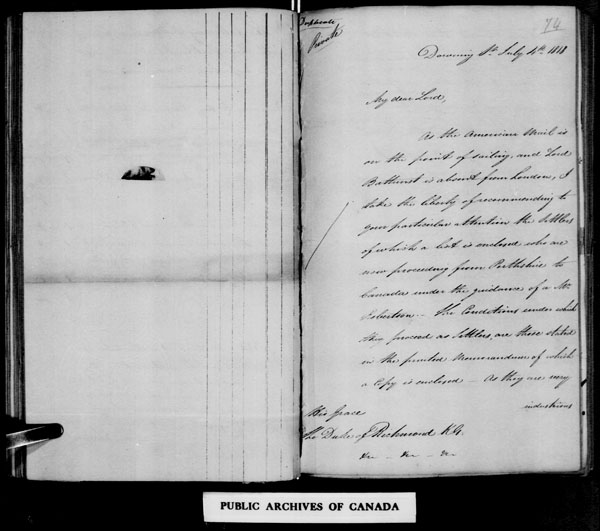 74
Duplicate
Private
Downing St. July 4th 1818
My dear Lord,
As the American Mail is
on the point of sailing, and Lord
Bathurst is absent from London, I
take the liberty of recommending to
your particular attention the Settlers
of which a list is enclosed who are
now proceeding from Perthshire to
Canada under the guidance of a Mr
Robertson – The Conditions under which
they proceed as Settlers, are those stated
in the printed Memorandum of which
a Copy is enclosed – As they are very
industrious
His Grace
The Duke of Richmond K.G.
&c – &c – &c
PUBLIC ARCHIVES OF CANADA